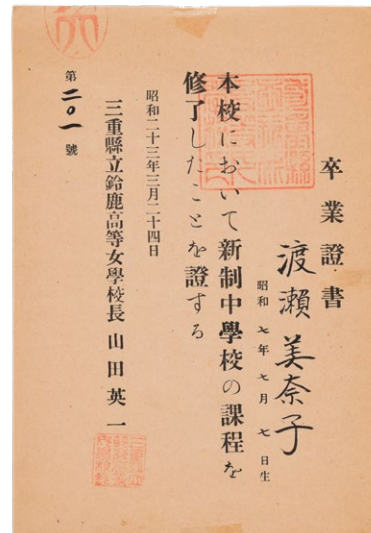 卒業證書
渡瀬美奈子
昭和七年七月七日生
本校において新制中學校の課程を
修了したことを證する
昭和二十三年三月二十四日
三重縣立鈴鹿高等女學校長 山田英一
第二〇一號